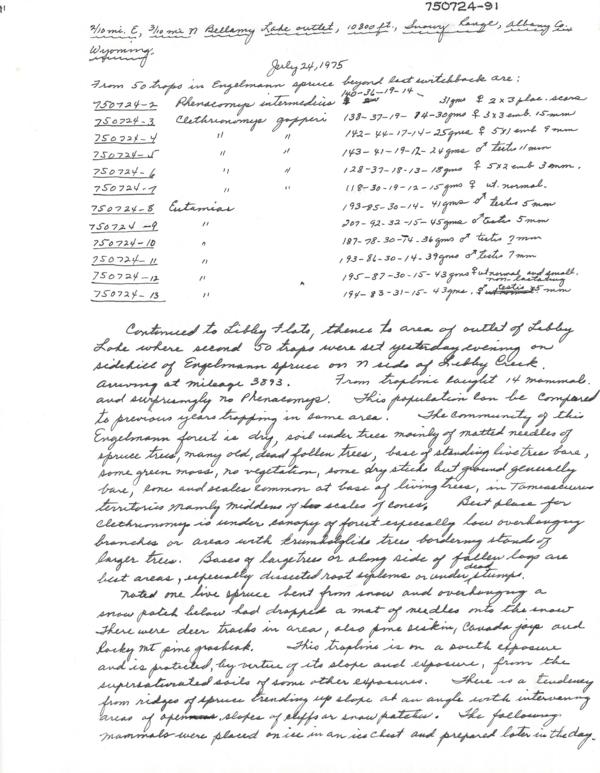 750724-91
2/10 mi. E, 3/10 mi N Bellamy Lake outlet, 10800 ft., Snowy Range, Albany Co.
Wyoming.
July 24, 1975
From 50 traps in Engelmann spruce beyond last switchback are:
750724-2 Phenacomys intermedius 140-36-19-14- 31gms ♀ 2x3 plac. scars
750724-3 Clethrionomys gapperi 138-37-19- 24-30gms ♀ 3x3 emb. 15 mm
750724-4 " " 142-44-17-14-25gms ♀ 5x1 emb 9 mm
750724-5 " " 143-41-19-12-24gms ♂ testis 11 mm
750724-6 " " 128-37-18-13-18gms ♀ 5x2 emb 3 mm.
750724-7 " " 118-30-19-12-15gms ♀ ut. normal.
750724-8 Eutamias 193-85-30-14- 41gms ♂ testis 5 mm
750724-9 " 207-92-32-15-45gms ♂ testis 5 mm
750724-10 " 187-78-30-14-36gms ♂ testis 7 mm
750724-11 " 193-86-30-14-39gms ♂ testis 7 mm
750724-12 " 195-87-30-15-43gms ♀ ut normal and small. non-lactating
750724-13 " 194-83-31-15-43gms. ♂ testis 5 mm
Continued to Libby Flats, thence to area of outlet of Libby
Lake where second 50 traps were set yesterday evening on
sidehill of Engelmann spruce on N side of Libby Creek.
Arriving at mileage 3893. From trapline caught 14 mammals.
and surprisingly no Phenacomys. This population can be compared
to previous years trapping in same area. The community of this
Engelmann forest is dry, soil under trees mainly of matted needles of
spruce trees, many old, dead fallen trees, base of standing live trees bare,
some green moss, no vegetation, some dry sticks but ground generally
bare, cone and scales common at base of living trees, in Tamiasciurus
territories mainly middens of scales of cones. Best place for
Clethrionomys is under canopy of forest especially low overhanging
branches or areas with krumholglitz trees bordering stands of
larger trees. Bases of large trees or along side of fallen logs are
best areas, especially dissected root systems or under dead stumps.
Noted one live spruce bent from snow and overhanging a
snow patch below had dropped a mat of needles onto the snow
There were deer tracks in area, also pine siskin, Canada jays and
Rocky Mt pine grosbeak. This trapline is on a south exposure
and is protected, by vertue of its slope and exposure, from the
supersaturated soils of some other exposures. There is a tendency
from ridges of spruce trending up slope at an angle with intervening
areas of open slopes of cliffs or snow patches. The following
mammals were placed on ice in an ice chest and prepared later in the day.